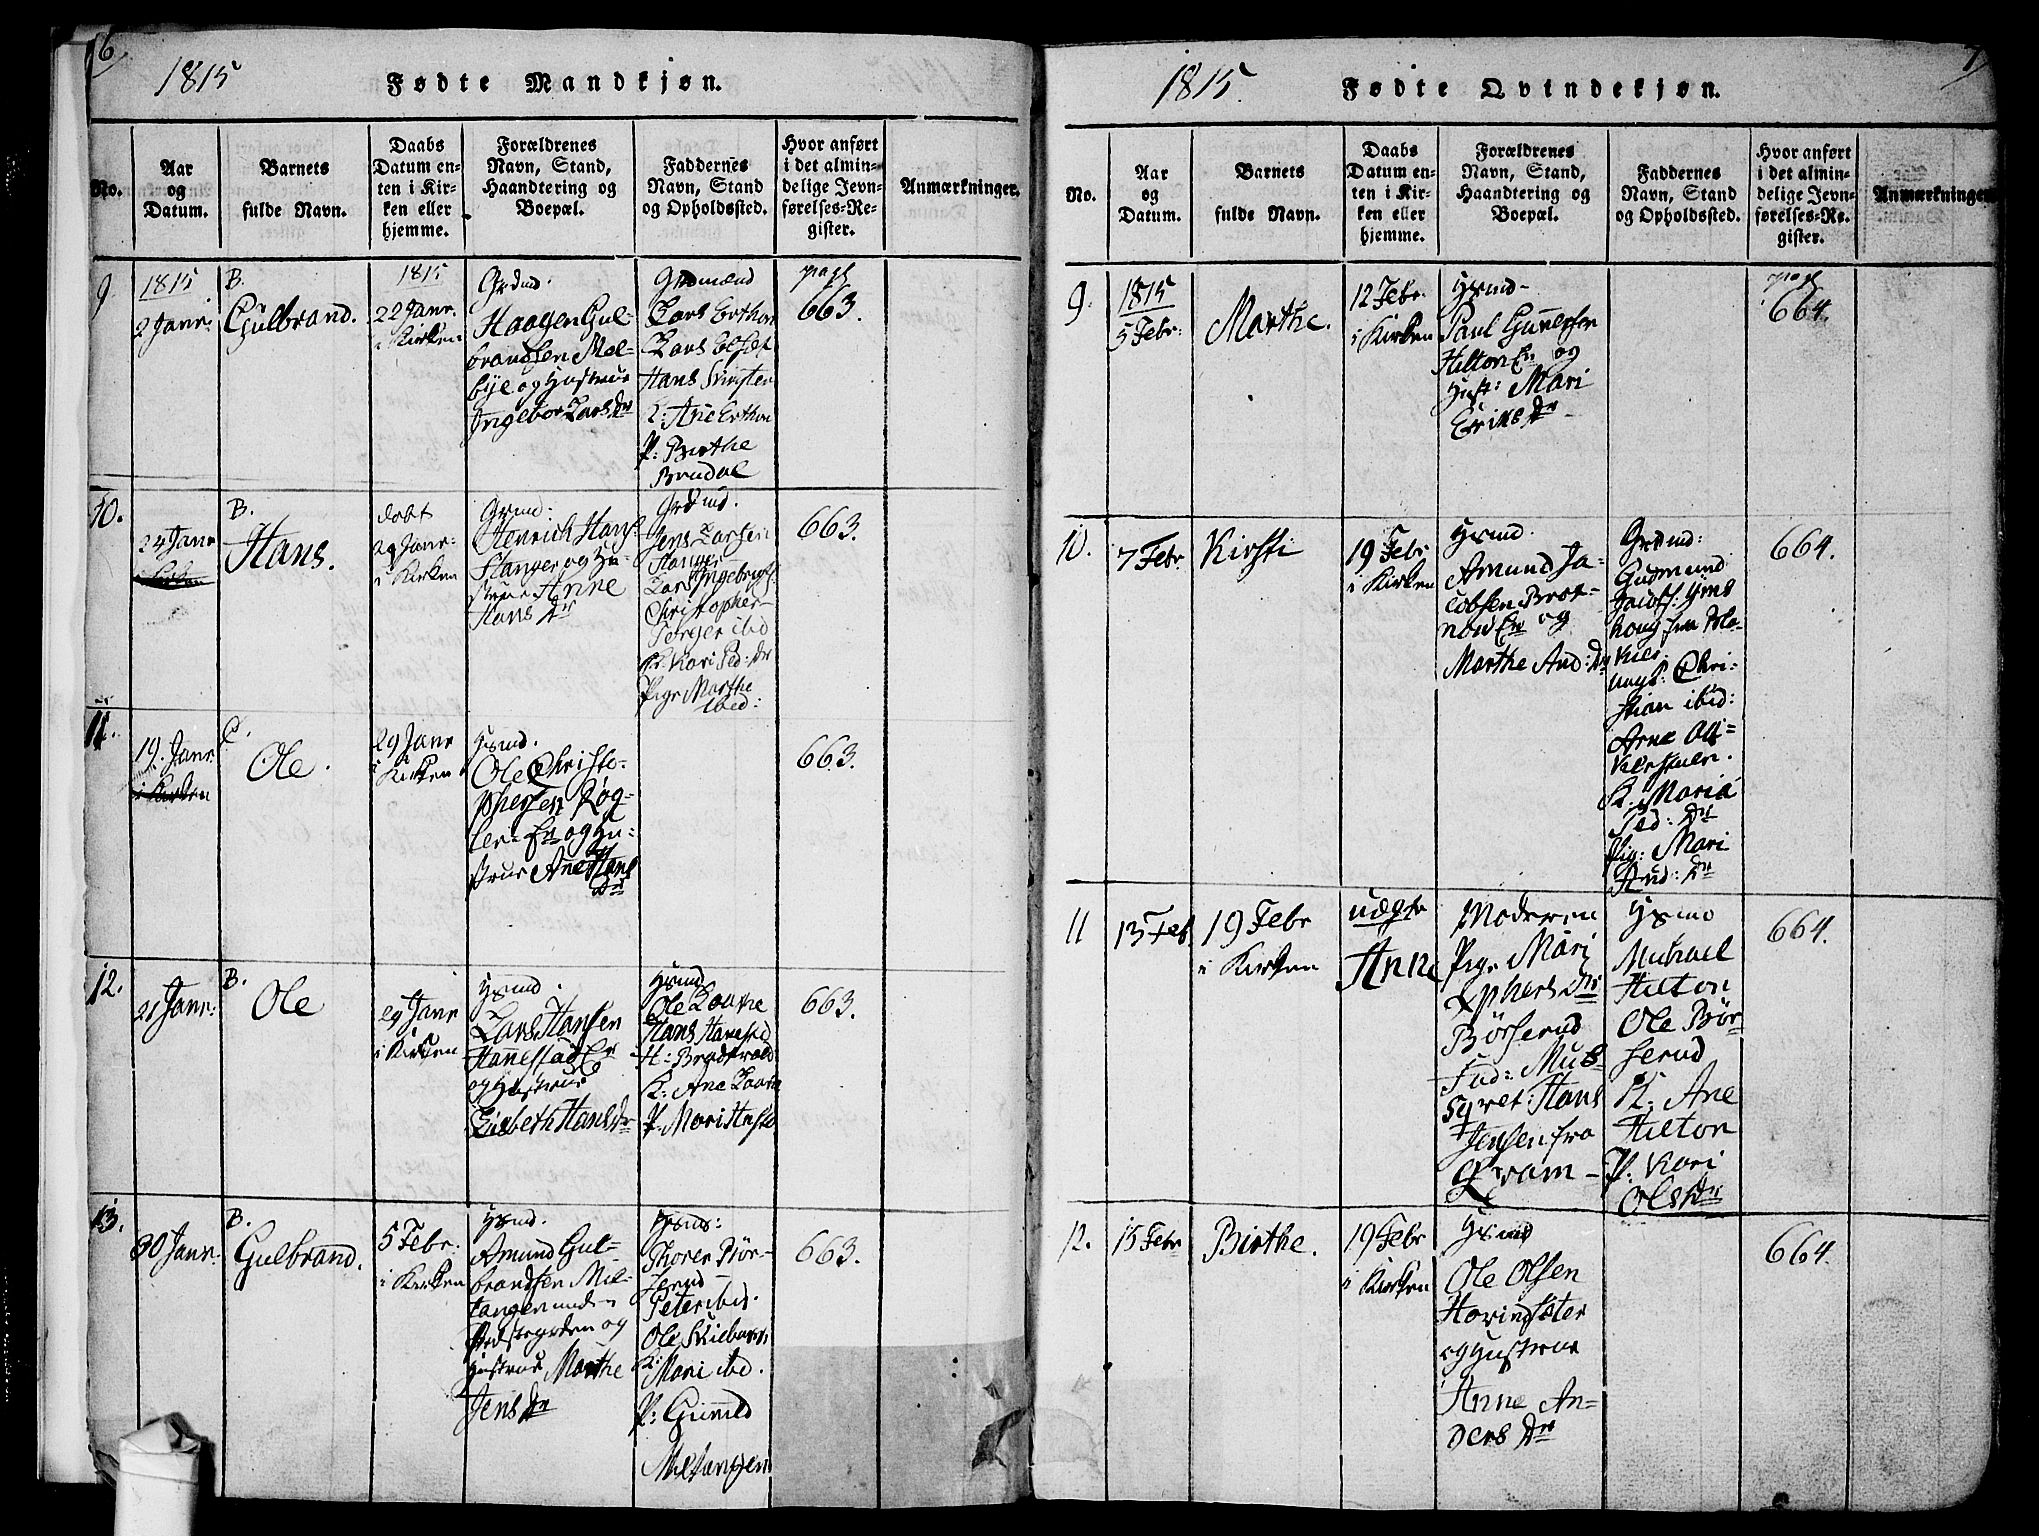 6
1815
Fødte Mandkjøn.
No.
Aar
og
Datum.
Barnets
fulde Navn.
Daabs
Datum en-
ten i Kir-
ken eller
hjemme.
Forældrenes
Navn, Stand,
Haandtering og
Boepæl.
Faddernes
Navn, Stand
og Opholdssted.
Hvor anført
i det almin-
delige Jevn-
førelses-Re-
gister.
Anmærkninger.
9
1815
2 Janr.
B.
Gulbrand.
1815
22 Janr.
i Kirken
Grdmd.
Haagen Gul-
brandsen Mel-
bye og Hustrue
Ingebor Lars Dr
Grdmænd
Lars
Lars
Hans
K: Ane
P: Birthe
Brudal
pag
663.
10.
24 Janr
i Kirken
B.
Hans.
døbt
29 Janr.
i Kirken
Grmd.
Henrich Hans.
Stanger og Hu-
strue Anne
Hans Dr
Grdmd.
Jens Larsen
Stanger
Lars Ingebrigts.
Christopher
ibid
K. Kari Ped. Dr
Pige Marthe
ibid:
663.
11.
19. Janr.
i Kirken
C.
Ole.
29 Janr
i Kirken
Hsmd.
Ole Christo-
phersen Røg-
ler- Er og Hu-
strue Ane Hans
Dr
663.
12.
21 Janr.
B.
Ole
29 Janr
i Kirken
Hsmd.
Lars Hansen
Hannestad Er
og Hustrue
Lisbeth Hans Dr
Hsmd.
Ole
Hans
H:
K: Ane
P: Mari
663.
13.
30 Janr.
B.
Gulbrand.
5 Febr.
i Kirken
Hsmd.
Amund Gul-
brandsen Mel-
tangen und-
Præstegrden og
Hustrue Marthe
Jens Dr
Hsmd:
Thorer Bør-
serud
Peter ibid.
Ole
K: Mari ibd.
P: Gunild
Meltangen
663.
7
1815.
Fødte Qvindekjøn.
No.
Aar
og
Datum.
Barnets
fulde Navn.
Daabs
Datum en-
ten i Kir-
ken eller
hjemme.
Forældrenes
Navn, Stand,
Haandtering og
Boepæl.
Faddernes
Navn, Stand
og Opholdssted.
Hvor anført
i det almin-
delige Jevn-
førelses-Re-
gister.
Anmærkninger
9.
1815
5 Febr.
Marthe.
12 Febr.
i Kirken
Hsmd-
Paul Gunersen
Hilton Er og
Hust: Mari
Eriks Dr
pag
664.
10.
7 Febr.
Kirsti
19 Febr
i Kirken
Hsmd.
Amund Ja-
cobsen Brot-
nov Er og
Marthe And: Dr
Grdmd:
Gudmund
Jacobs:
fra
Chri-
stian ibid:
Arne
K: Maria
Ped: Dr
Pig: Mari
And: Dr
664.
11
13 Feb.
19 Febr
i Kirken
uægte
Anne
Moderen
Pige Mari
Dr
Børserud
Fud: Mus-
syret: Hans
Jensen fra
Kram-
Hsmd
Michael
Hilton
Ole Bør-
serud
K: Ane
Hilton
P: Kari
Ols Dr
664.
12.
15 Febr
Birthe.
19 Febr
i Kirken
Hsmd
Ole Olsen
Hovindsæter
og Hustrue
Anne An-
ders Dr
664.